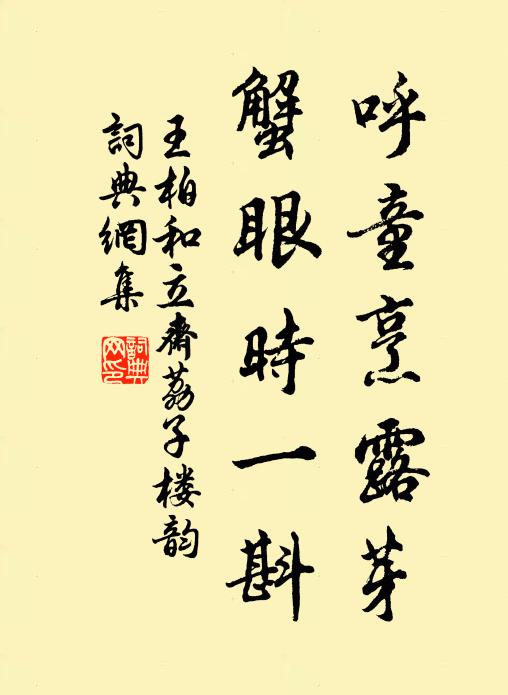 呼童烹露芽
蟹眼時一斟
王柏和立齋荔子楼韵
詞典網集
詞典網印